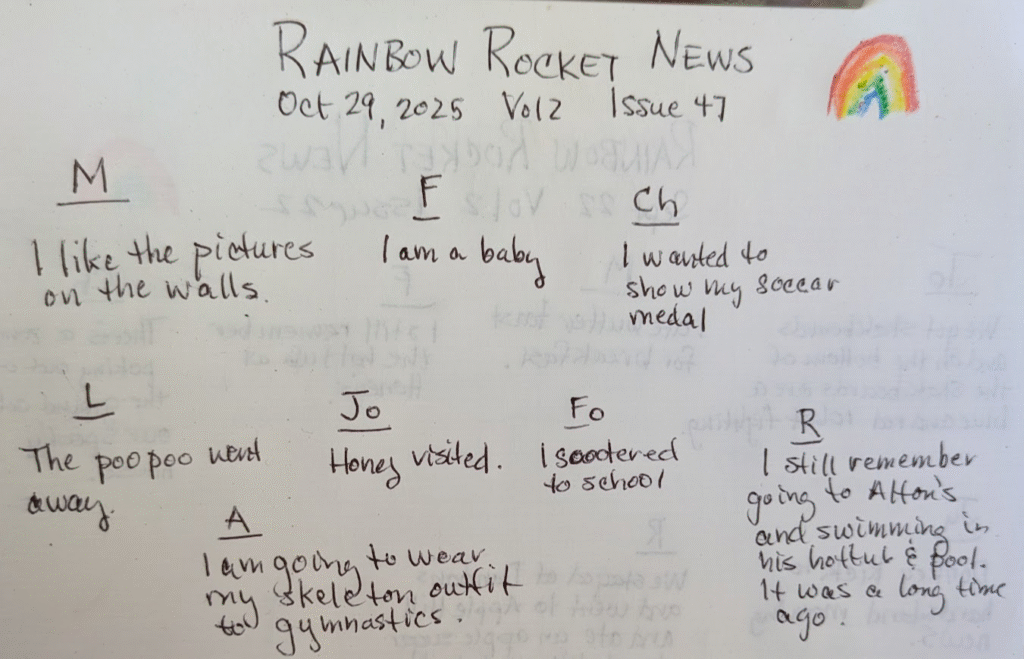 RAINBOW ROCKET NEWS
Oct 29, 2025 Vol 2 Issue 47
M
I like the pictures
on the walls.
F
I am a baby
Ch
I wanted to
show my soccar
medal
L
The poo poo went
away.
Jo
Honey visited.
Fo
I scootered
to school
R
I still remember
going to Alton's
and swimming in
his hottub & pool.
It was a long time
ago.
A
I am going to wear
my skeleton outfit
to gymnastics.